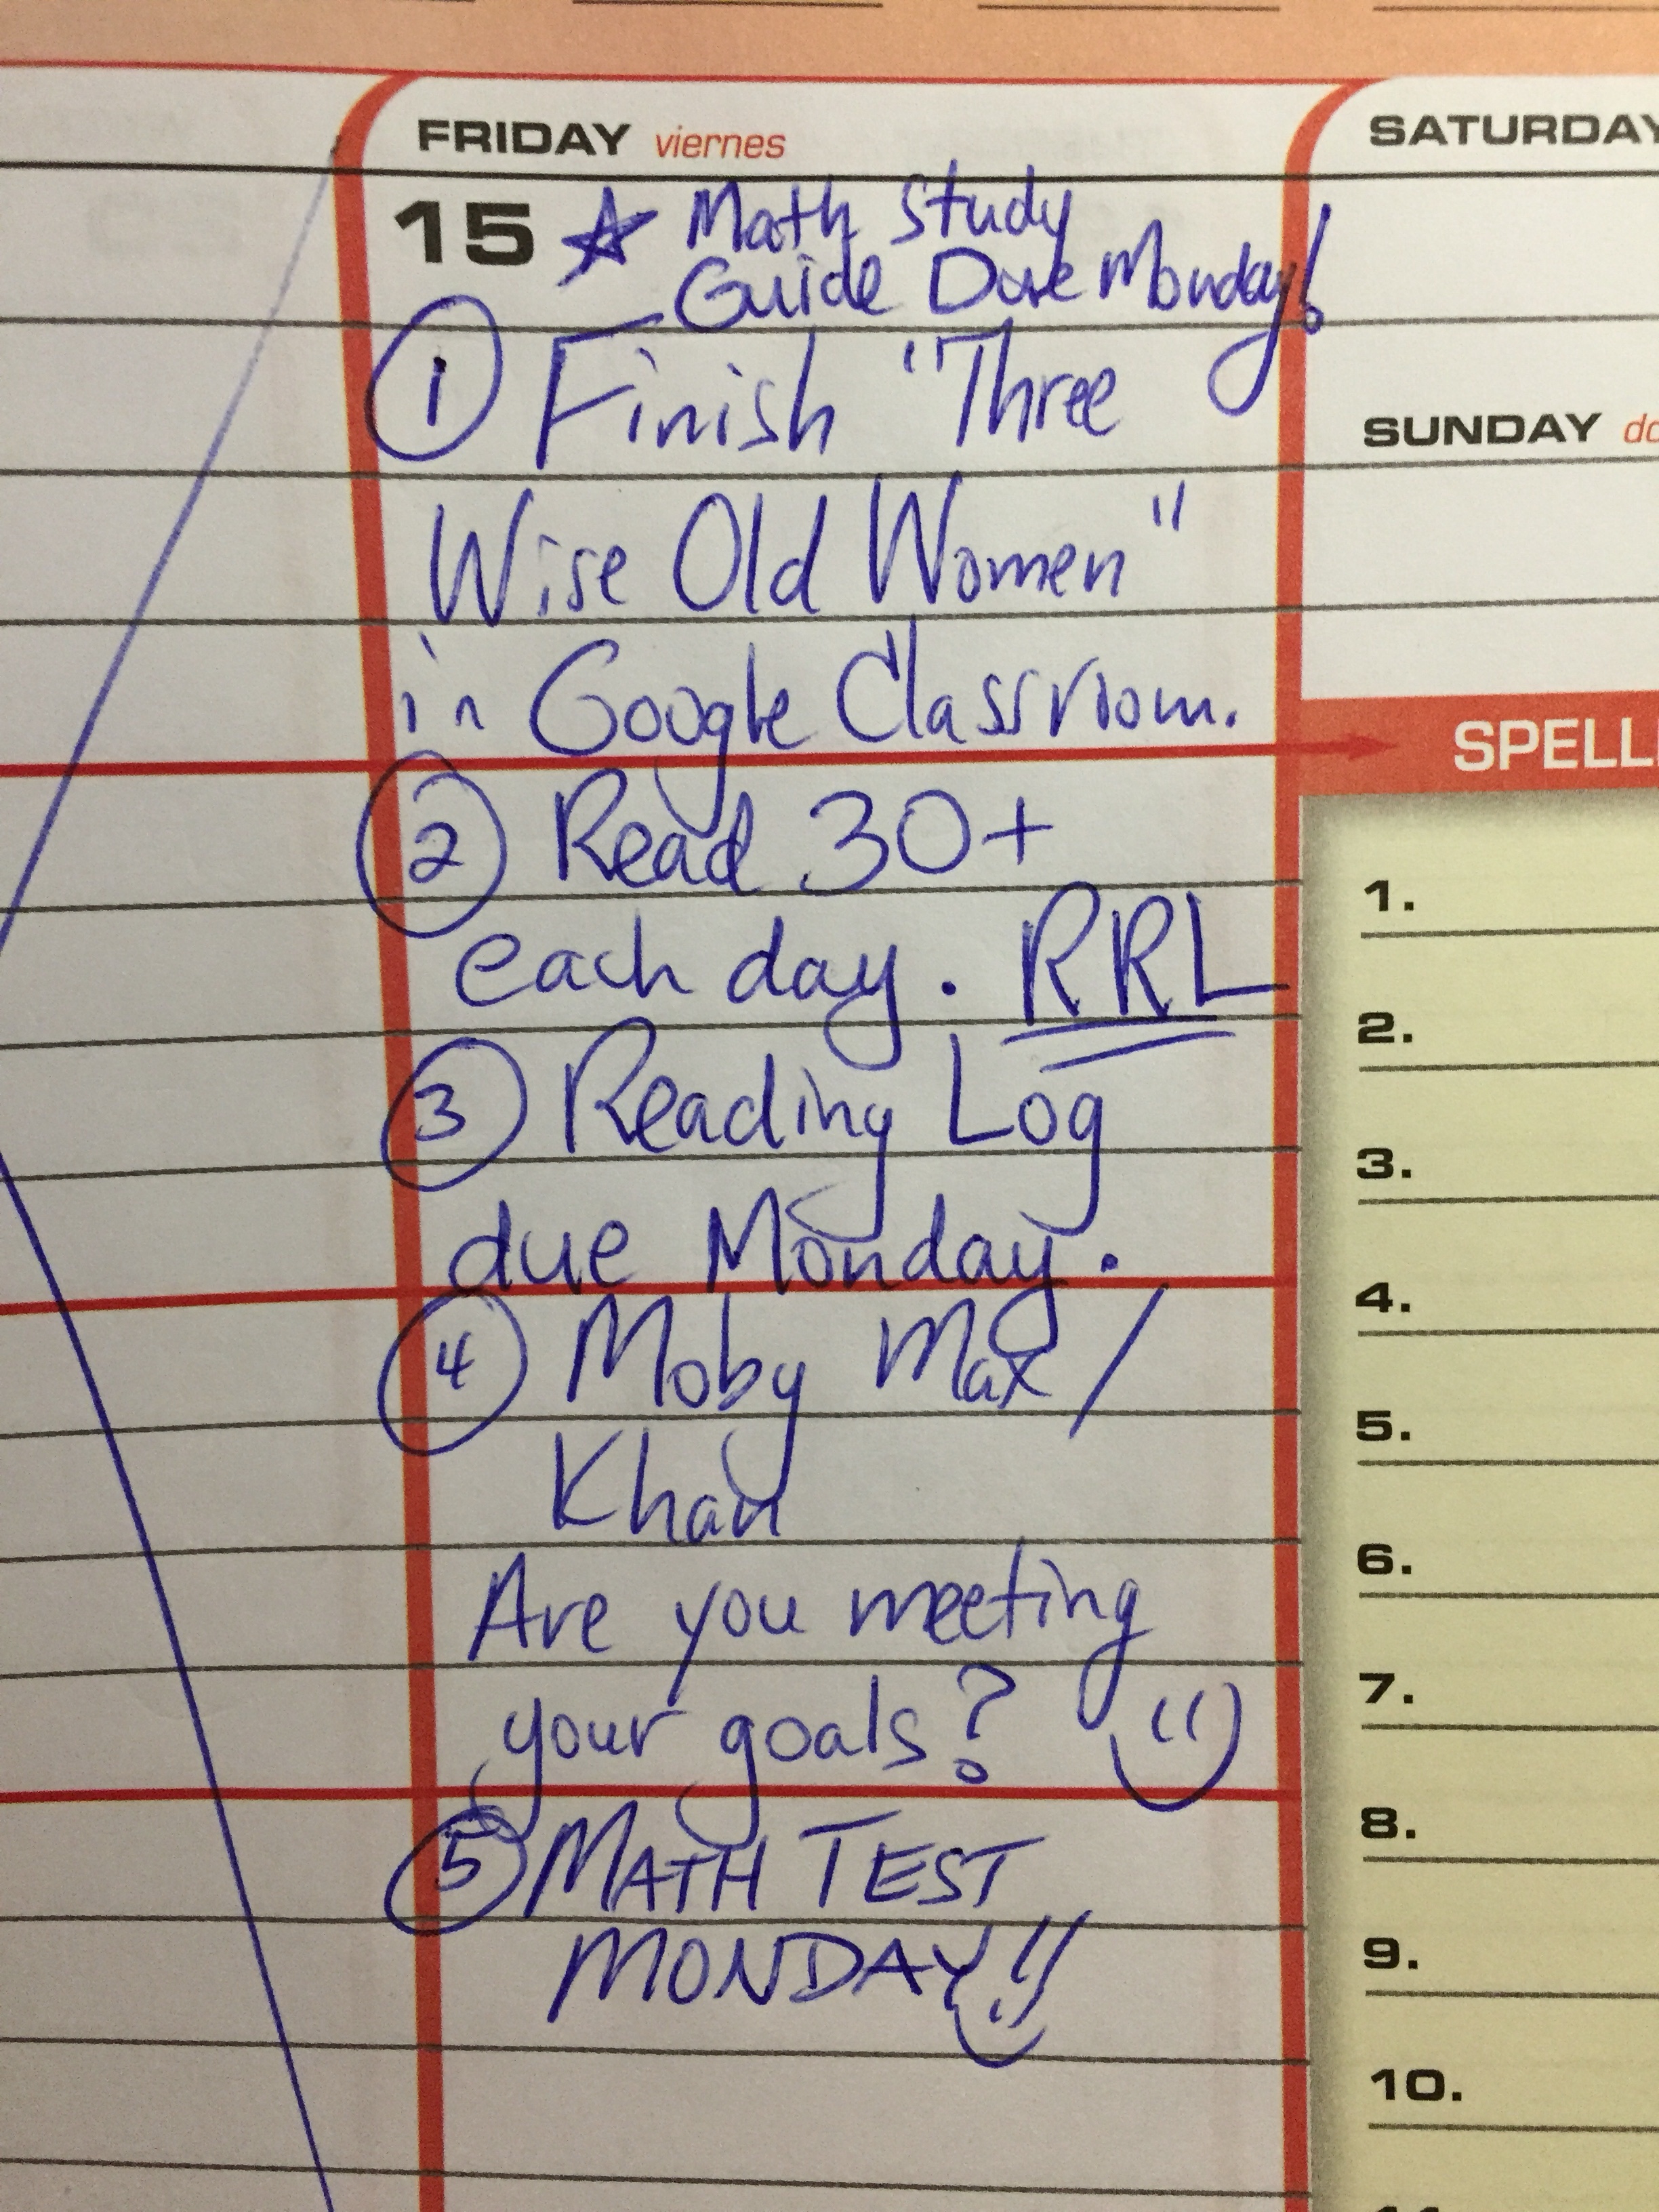 FRIDAY viernes
15 ☆ Math Study
Guide Due Monday!
① Finish "Three
Wise Old Women"
in Google Classroom.
② Read 30+
each day. RRL
③ Reading Log
due Monday.
④ Moby Max/
Khan
Are you meeting
your goals?
⑤ MATH TEST
MONDAY!!
SATURDAY
SUNDAY
SPELL
1.
2.
3.
4.
5.
6.
7.
8.
9.
10.